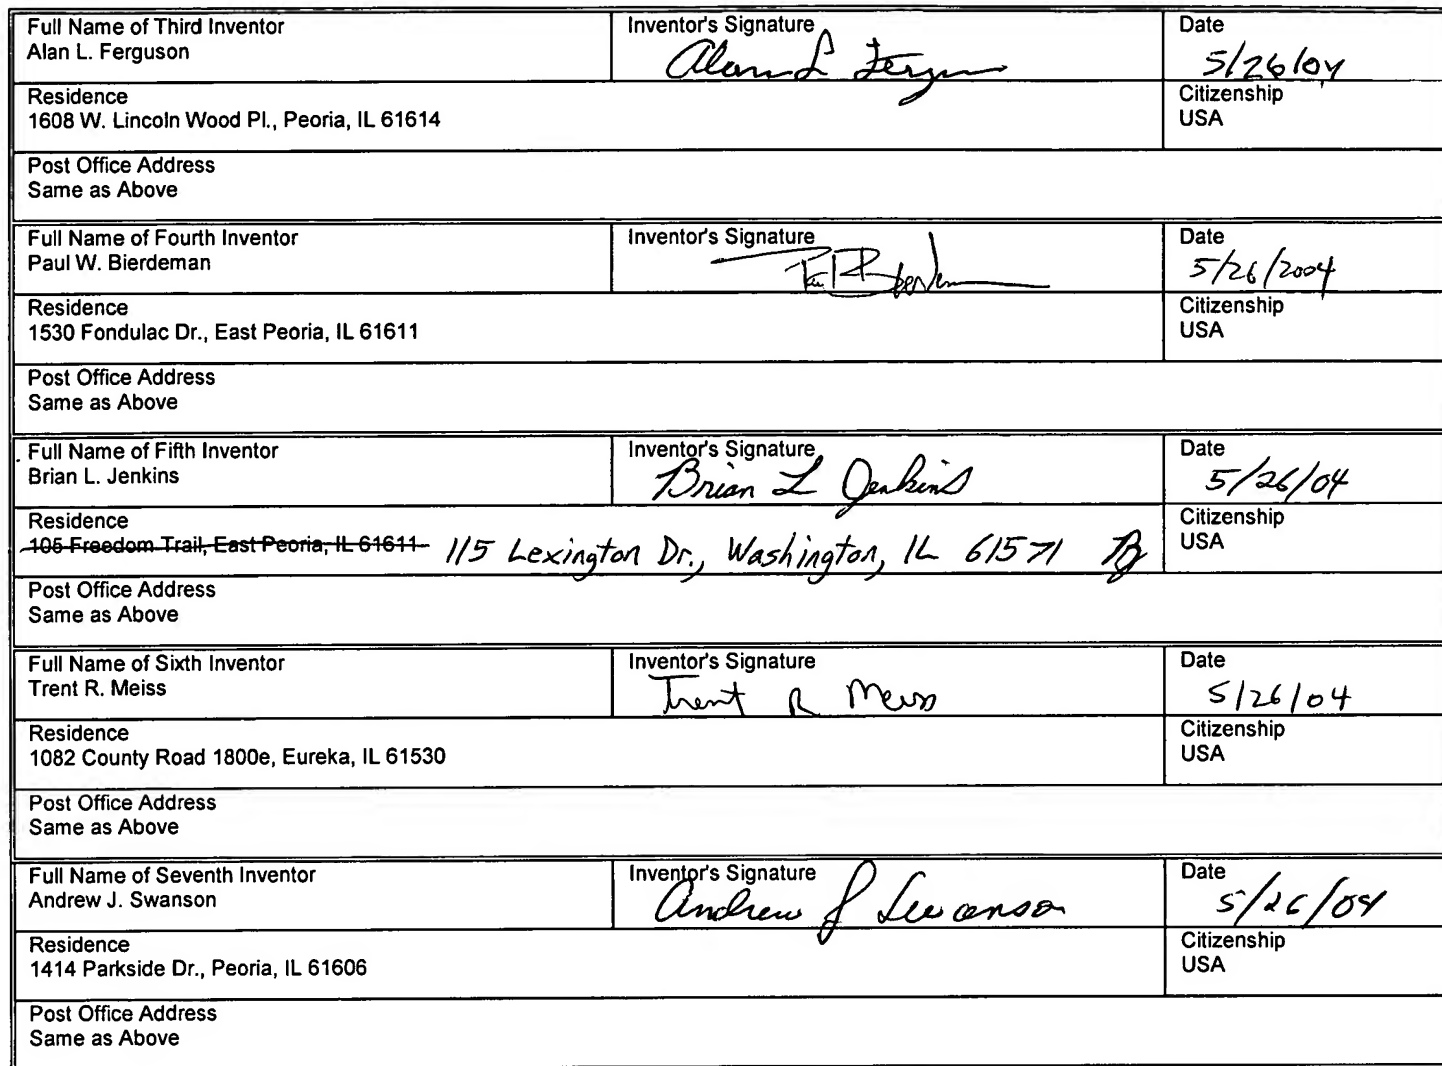 Full Name of Third Inventor
Alan L. Ferguson
Inventor's Signature
Alan L Ferguson
Date
5/26/04
Residence
1608 W. Lincoln Wood Pl., Peoria, IL 61614
Citizenship
USA
Post Office Address
Same as Above
Full Name of Fourth Inventor
Paul W. Bierdeman
Inventor's Signature
Date
5/26/2004
Residence
1530 Fondulac Dr., East Peoria, IL 61611
Citizenship
USA
Post Office Address
Same as Above
Full Name of Fifth Inventor
Brian L. Jenkins
Inventor's Signature
Brian L Jenkins
Date
5/26/04
Residence
105 Freedom Trail, East Peoria, IL 61611 115 Lexington Dr., Washington, IL 61571
Citizenship
USA
Post Office Address
Same as Above
Full Name of Sixth Inventor
Trent R. Meiss
Inventor's Signature
Trent R Meiss
Date
5/26/04
Residence
1082 County Road 1800e, Eureka, IL 61530
Citizenship
USA
Post Office Address
Same as Above
Full Name of Seventh Inventor
Andrew J. Swanson
Inventor's Signature
Andrew J Swanson
Date
5/26/04
Residence
1414 Parkside Dr., Peoria, IL 61606
Citizenship
USA
Post Office Address
Same as Above